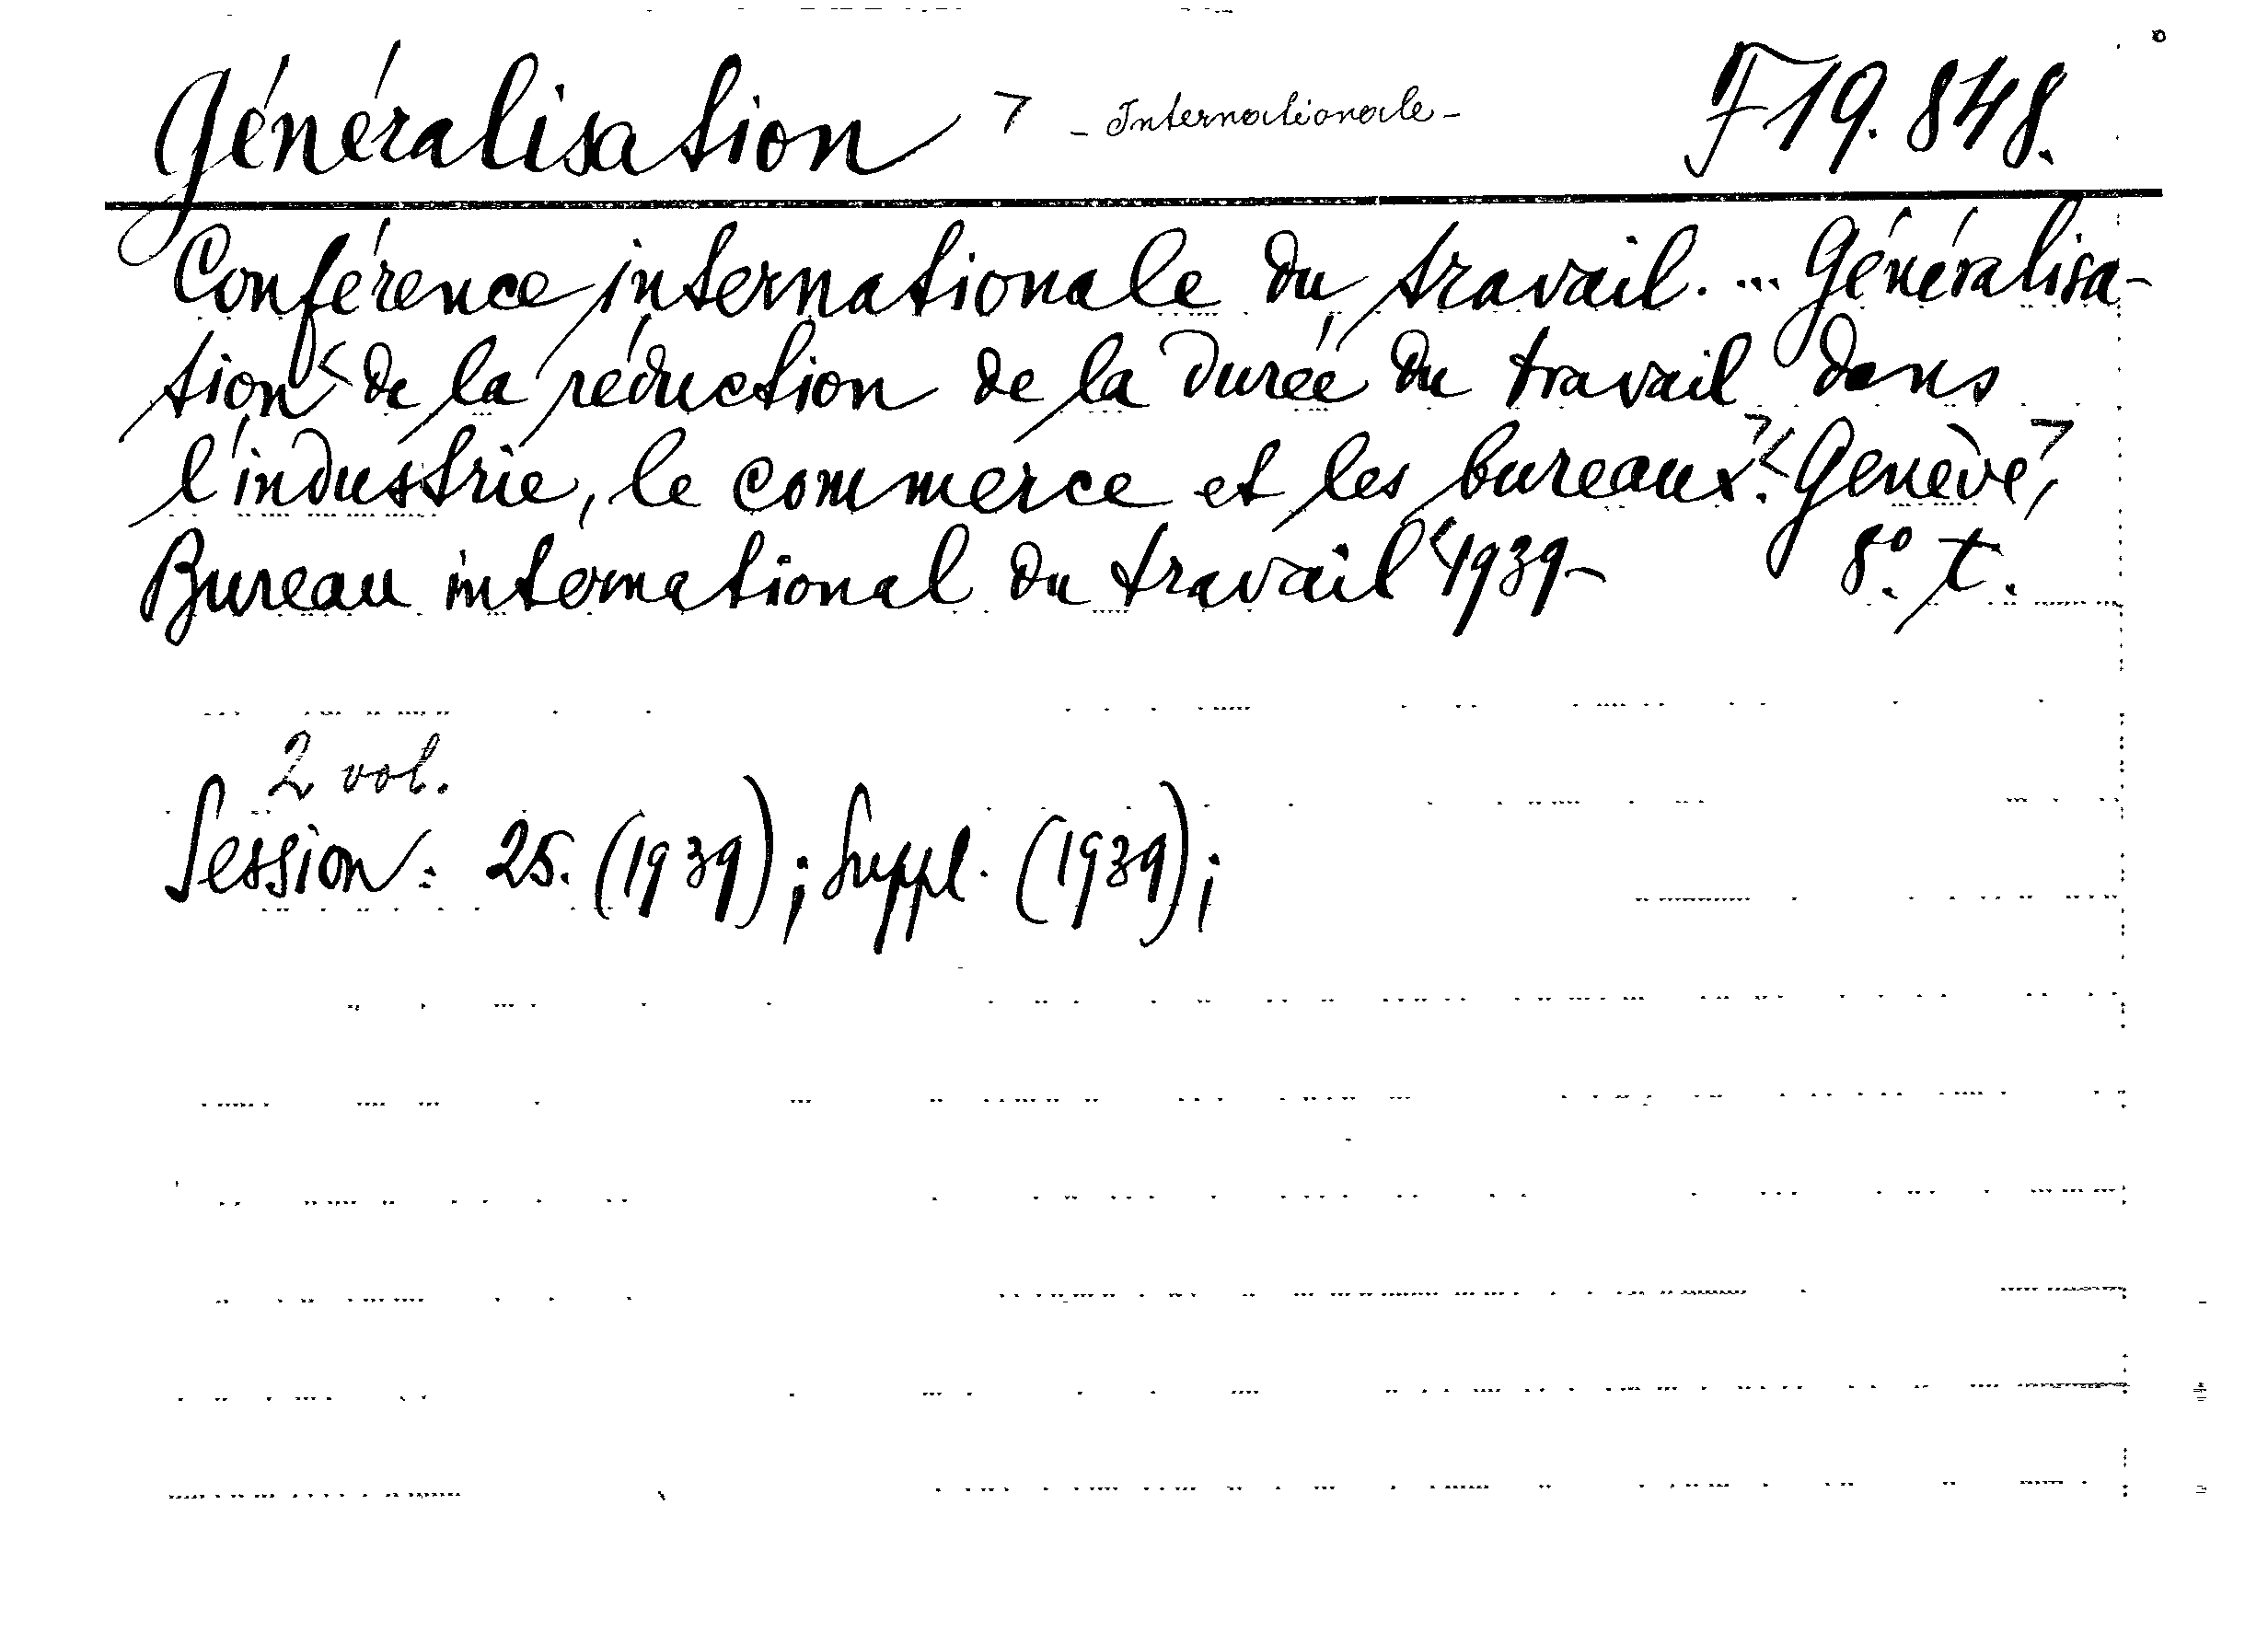 Généralisation > - Internationale - F 19.848.
Conférence internationale du travail. ... Généralisa-
tion < de la réduction de la durée du travail dans
l'industrie, le commerce et les bureaux >. < Genève >,
Bureau international du travail < 1939- 8°. t.
2 vol.
Session: 25. (1939); Suppl. (1939);